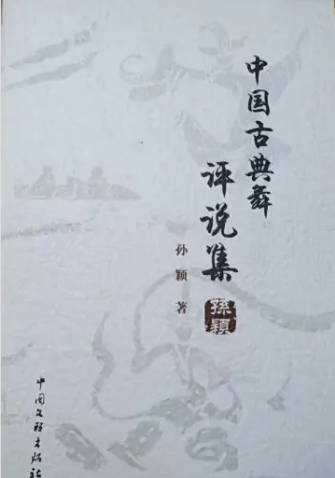 中国古典舞
评说集
孙颖
孙颖 著
中国文联出版社